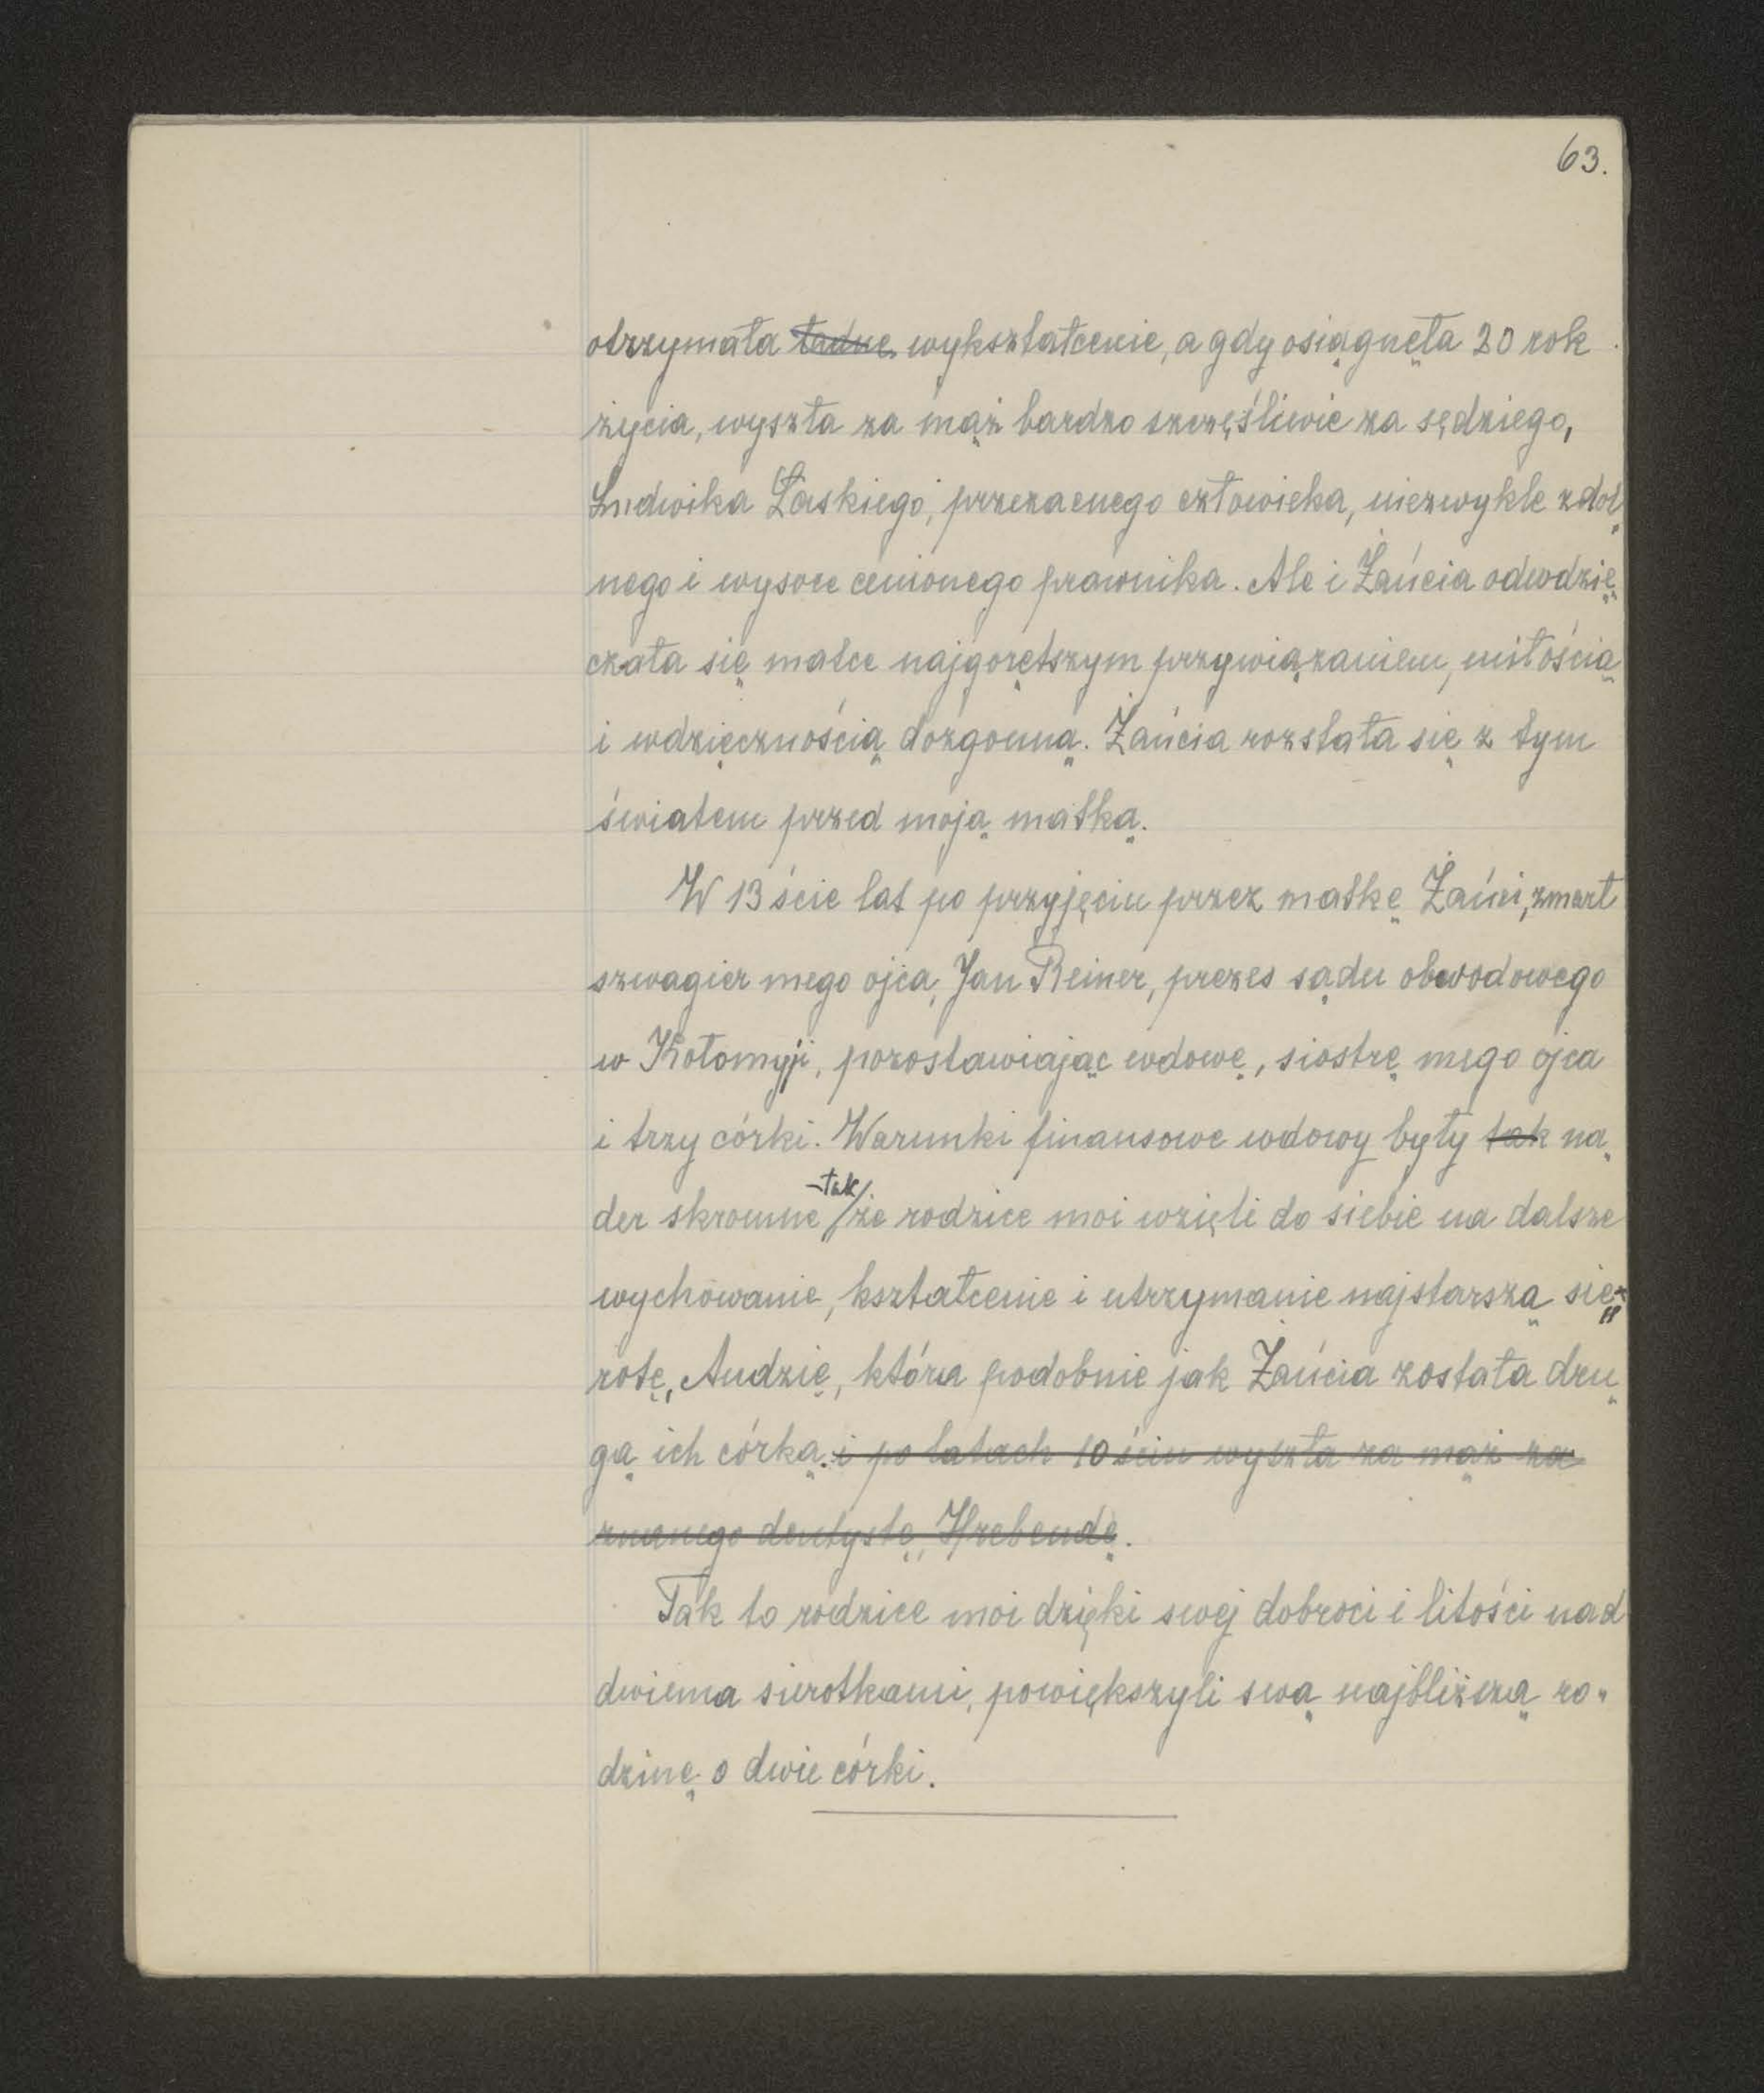 63.
otrzymała ładne wykształcenie, a gdy osiągnęła 20 rok
życia, wyszła za mąż bardzo szczęśliwie za sędziego,
Ludwika Laskiego, przezacnego człowieka, niezwykle zdol
nego i wysoce cenionego prawnika. Ale i Żańcia odwdzię
czała się matce najgorętszym przywiązaniem, miłością
i wdzięcznością dozgonną. Żańcia rozstała się z tym
światem przed moją matką.
W 13ście lat po przyjęciu przez matkę Żańci, zmarł
szwagier mego ojca, Jan Reiner, prezes sądu obwodowego
w Kołomyji, pozostawiając wdowę, siostrę mego ojca
i trzy córki. Warunki finansowe wdowy były tak na
der skromne -tak/ że rodzice moi wzięli do siebie na dalsze
wychowanie, kształcenie i utrzymanie najstarszą sie-
rotę, Audzię, która podobnie jak Żańcia została dru
gą ich córką. i po latach 10ściu wyszła za mąż za
znanego dentystę, Hrebendę.
Tak to rodzice moi dzięki swej dobroci i litości nad
dwiema sierotkami, powiększyli swą najbliższą ro-
dzinę o dwie córki.